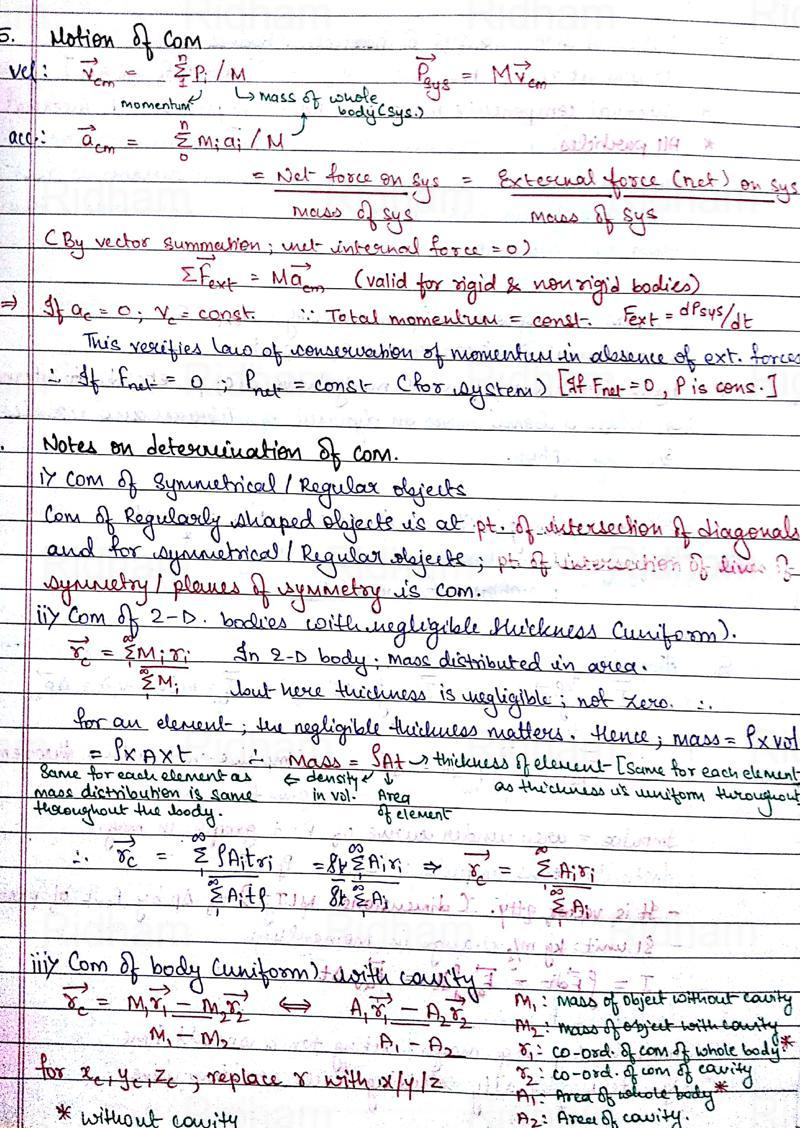 5. Motion of COM
vel: v⃗cm = Σⁿ₁ Pᵢ / M P⃗sys = Mv⃗cm
momentum ↵ ↳ mass of whole body (sys.)
acc.: a⃗cm = Σⁿ₀ mᵢaᵢ / M
= Net force on sys / mass of sys = External force (net) on sys / mass of sys
(By vector summation; net internal force = 0)
ΣF⃗ext = Ma⃗cm (valid for rigid & non rigid bodies)
⇒ If ac = 0; vc = const. ∵ Total momentum = const. Fext = dPsys/dt
This verifies law of conservation of momentum in absence of ext. forces
∴ If Fnet = 0; Pnet = const (for system) [If Fnet = 0, P is cons.]
Notes on determination of COM.
i) COM of Symmetrical / Regular objects
COM of Regularly shaped objects is at pt. of intersection of diagonals
and for symmetrical / Regular objects; pt of intersection of lines of
symmetry / planes of symmetry is COM.
ii) COM of 2-D. bodies with negligible thickness (uniform).
r⃗c = Σ^∞₁ Mᵢrᵢ / Σ^∞₁ Mᵢ In 2-D body; mass distributed in area.
but here thickness is negligible; not zero. ∴
for an element; the negligible thickness matters. Hence; mass = ρ x vol
= ρ x A x t ∴ Mass = ρAt → thickness of element [Same for each element
as thickness is uniform throughout
Same for each element as mass distribution is same throughout the body. ← density in vol. ↓ Area of element
∴ r⃗c = Σ^∞₁ ρAᵢtrᵢ / Σ^∞₁ Aᵢtρ = ρt Σ^∞₁ Aᵢrᵢ / ρt Σ^∞₁ Aᵢ ⇒ r⃗c = Σ^∞₁ Aᵢrᵢ / Σ^∞₁ Aᵢ
iii) COM of body (uniform) with cavity
r⃗c = M₁r⃗₁ - M₂r⃗₂ / M₁ - M₂ ⇔ A₁r⃗₁ - A₂r⃗₂ / A₁ - A₂
M₁: Mass of object without cavity
M₂: Mass of object with cavity
r₁: co-ord. of com of whole body*
r₂: co-ord. of com of cavity
A₁: Area of whole body*
A₂: Area of cavity.
for xc, yc, zc; replace r with x/y/z
* without cavity
Ridham